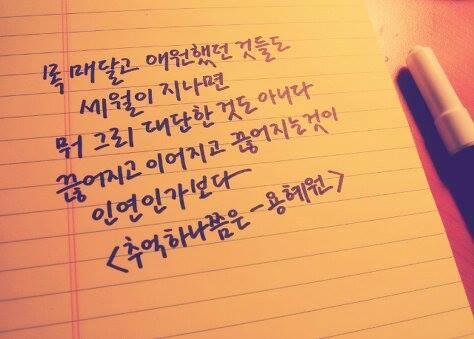 매달고 애원했던 것들도
세월이 지나면
뭐 그리 대단한 것도 아니다
끊어지고 이어지고 끊어지는것이
인연인가보다
<추억하나쯤은 - 용혜원>